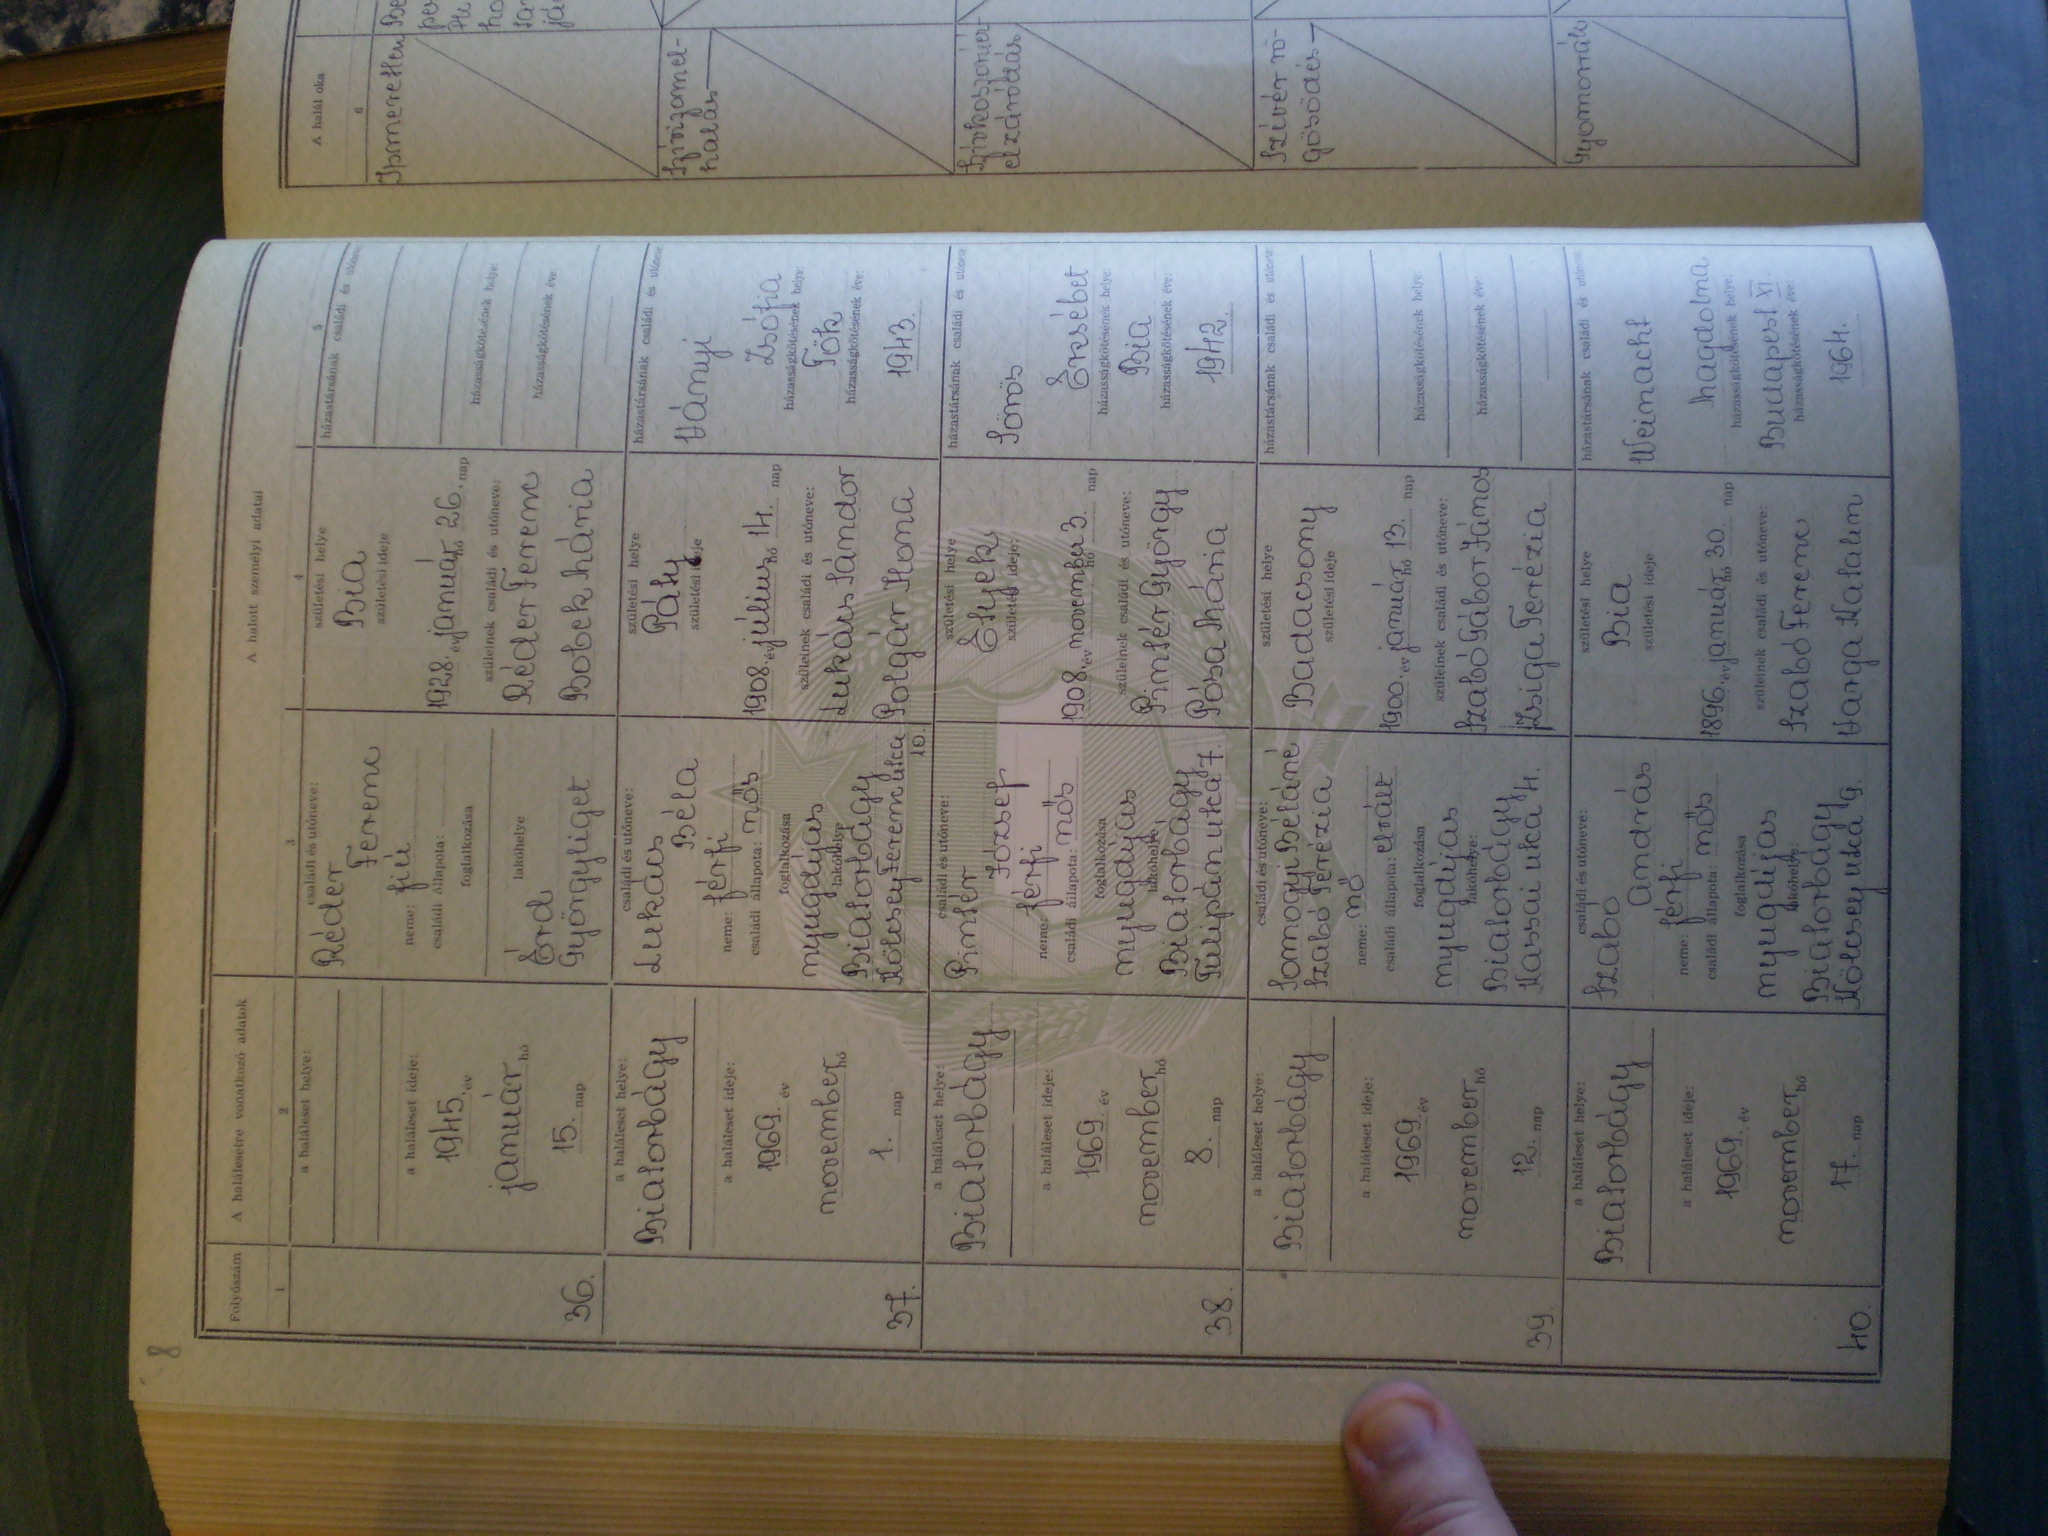 8
A halálesetre vonatkozó adatok
A halott személyi adatai
Folyószám
1
2
3
4
5
36.
a haláleset helye:
a haláleset ideje:
1945. év
január hó
15. nap
családi és utóneve:
Réder
Ferenc
neme: fiú
családi állapota:
foglalkozása
lakóhelye
Érd
Györgyliget
születési helye
Bia
születési ideje
1928. év január hó 26. nap
szüleinek családi és utóneve:
Réder Ferenc
Bobek Mária
házastársának családi és utóneve
házasságkötésének helye:
házasságkötésének éve:
37.
a haláleset helye:
Biatorbágy
a haláleset ideje:
1969. év
november hó
1. nap
családi és utóneve:
Lukács
Béla
neme: férfi
családi állapota: nős
foglalkozása
nyugdíjas
lakóhelye
Biatorbágy
Kölcsey Ferenc utca
10.
születési helye
Páty
születési ideje
1908. év július hó 14. nap
szüleinek családi és utóneve:
Lukács Sándor
Polgár Ilona
házastársának családi és utóneve
Ványi
Zsófia
házasságkötésének helye:
Tök
házasságkötésének éve:
1943.
38.
a haláleset helye:
Biatorbágy
a haláleset ideje:
1969. év
november hó
8. nap
családi és utóneve:
Pintér
József
neme: férfi
családi állapota: nős
foglalkozása
nyugdíjas
lakóhelye:
Biatorbágy
Tulipán utca 7.
születési helye
Etyek
születési ideje:
1908. év november hó 3. nap
szüleinek családi és utóneve:
Pintér György
Pósa Mária
házastársának családi és utóneve
Sörös
Erzsébet
házasságkötésének helye:
Bia
házasságkötésének éve:
1942.
39
a haláleset helye:
Biatorbágy
a haláleset ideje:
1969 év
november hó
12. nap
családi és utóneve:
Somogyi Béláné
Szabó Terézia
neme: nő
családi állapota: elvált
foglalkozása
nyugdíjas
lakóhelye:
Biatorbágy
Kassai utca 4.
születési helye
Badacsony
születési ideje
1900. év január hó 13. nap
szüleinek családi és utóneve:
Szabó Gábor János
Zsiga Terézia
házastársának családi és utóneve
házasságkötésének helye:
házasságkötésének éve:
40.
a haláleset helye:
Biatorbágy
a haláleset ideje:
1969. év
november hó
17. nap
családi és utóneve:
Szabó
András
neme: férfi
családi állapota: nős
foglalkozása
nyugdíjas
lakóhelye:
Biatorbágy
Kölcsey utca 9.
születési helye
Bia
születési ideje
1896. év január hó 30 nap
szüleinek családi és utóneve:
Szabó Ferenc
Varga Katalin
házastársának családi és utóneve
Weinacht
Magdolna
házasságkötésének helye:
Budapest XI.
házasságkötésének éve:
1964.
A halál oka
6
Ismeretlen
Szívizomel-
halás
Szívkoszorúér
elzáródás
Szívér rö-
gösödés